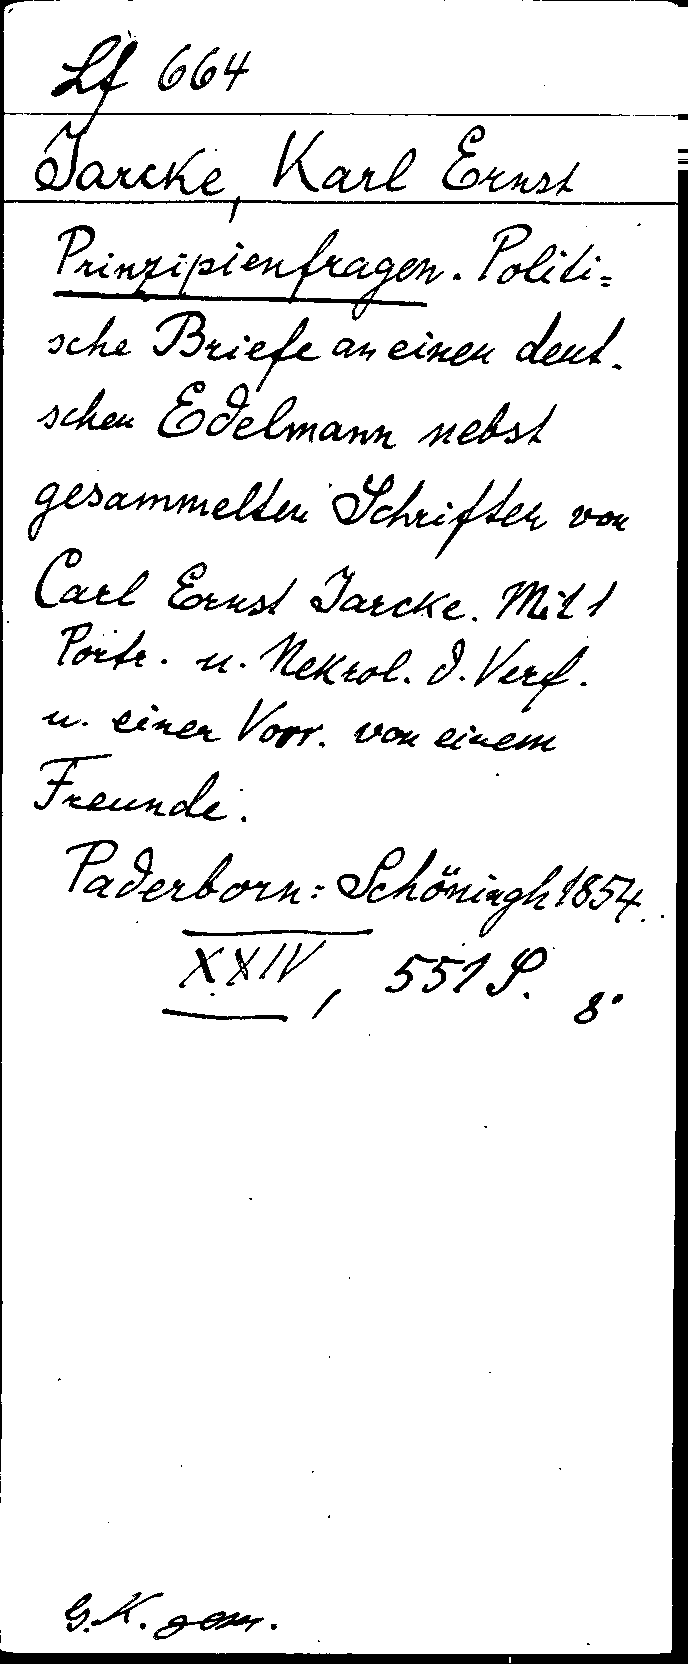 Lf 664
Jarcke, Karl Ernst
Prinzipienfragen. Politi=
sche Briefe an einen deut-
schen Edelmann nebst
gesammelten Schriften von
Carl Ernst Jarcke. Mit 1
Portr. u. Nekrol. d. Verf.
u. einer Vorr. von einem
Freunde.
Paderborn: Schöningh 1854.
XXIV, 551 S. 8°
G.K. gem.